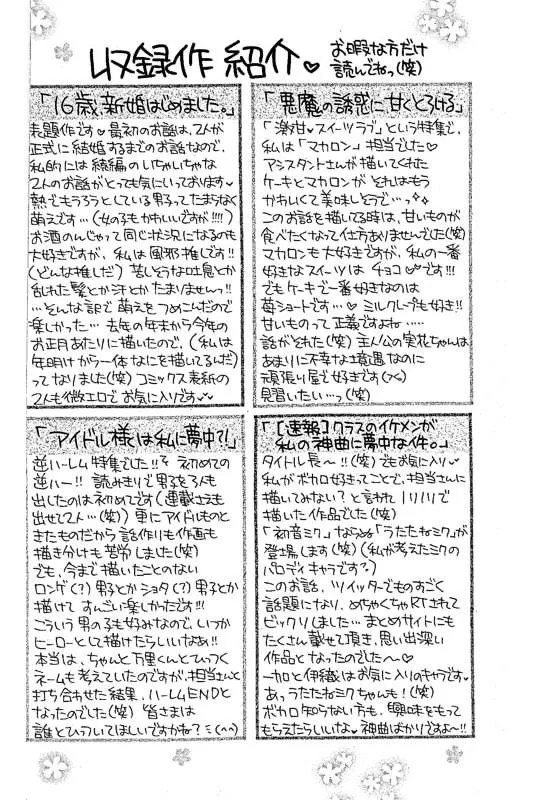 収録作 紹介♡
お暇な方だけ
読んでねっ(笑)
「16歳、新婚はじめました。」
表題作です♡最初のお話は、2人が
正式に結婚するまでのお話なので、
私的には続編のいちゃいちゃな
2人のお話がとっても気にいっております♡
熱でもうろうとしている男子ってたまらなく
萌えです…(女の子もかわいいですが!!!!)
お酒のんじゃって同じ状況になるのも
大好きですが、私は風邪推しです!!
(どんな推しだ) 苦しそうな吐息とか
乱れた髪とか汗とか たまりませんっ!!
…そんな訳で萌えをつめこんだので
楽しかった…去年の年末から今年の
お正月あたりに描いたので、(私は
年明けから一体なにを描いてるんだ)
ってなりました(笑)コミックス表紙の
2人も微エロでお気に入りです♡
「悪魔の誘惑に甘くとろける」
「激甘♡スイーツラブ」という特集で、
私は「マカロン」担当でした♡
アシスタントさんが描いてくれた
ケーキとマカロンが それはもう
かわいくて美味しそうで…っ
このお話を描いてる時は、甘いものが
食べたくなって仕方ありませんでした(笑)
マカロンも大好きですが、私の一番
好きなスイーツは チョコ♡です!!!
でもケーキで一番好きなのは
苺ショートです…♡ミルクレープも好き!!
甘いものって正義ですよね……
話がそれた(笑) 主人公の実花ちゃんは
あまりに不幸な境遇なのに
頑張り屋で好きです(つく)
見習いたい…っ(笑)
「アイドル様は私に夢中?!」
逆ハーレム特集でした!!初めての
逆ハー!! 読みきりで男子を3人も
出したのは初めてです(連載さえも
出せて2人…(笑))更にアイドルものと
きたものだから 話作りも作画も
描き分けも苦労しました(笑)
でも、今まで描いたことのない
ロンゲ(?)男子とか ショタ(?)男子とか
描けて すんごい楽しかったです!!!
こういう男の子も好みなので、いつか
ヒーローとして描けたらいいなぁ!!
本当は、ちゃんと万里くんとくっつく
ネームも考えていたのですが、担当さんと
打ち合わせた結果、ハーレムENDと
なったのでした(笑) 皆さまは
誰とくっついてほしいですかね?
「【速報】クラスのイケメンが
私の神曲に夢中な件。」
タイトル長〜!!(笑)でもお気に入り♡
私がボカロ好きってことで、担当さんに
描いてみない?と言われ ノリノリで
描いた作品でした(笑)
「初音ミク」ならぬ「うたたねミク」が
登場します(笑)(私が考えたミクの
パロディキャラです?)
このお話、ツイッターでものすごく
話題になり、めちゃくちゃRTされて
ビックリしました…まとめサイトにも
たくさん載せて頂き、思い出深い
作品となったのでした〜♡
一加と伊織はお気に入りのキャラです
あ、うたたねミクちゃんも!(笑)
ボカロ知らない方も、興味をもって
もらえたらいいな♡神曲ばかりですよ〜!!